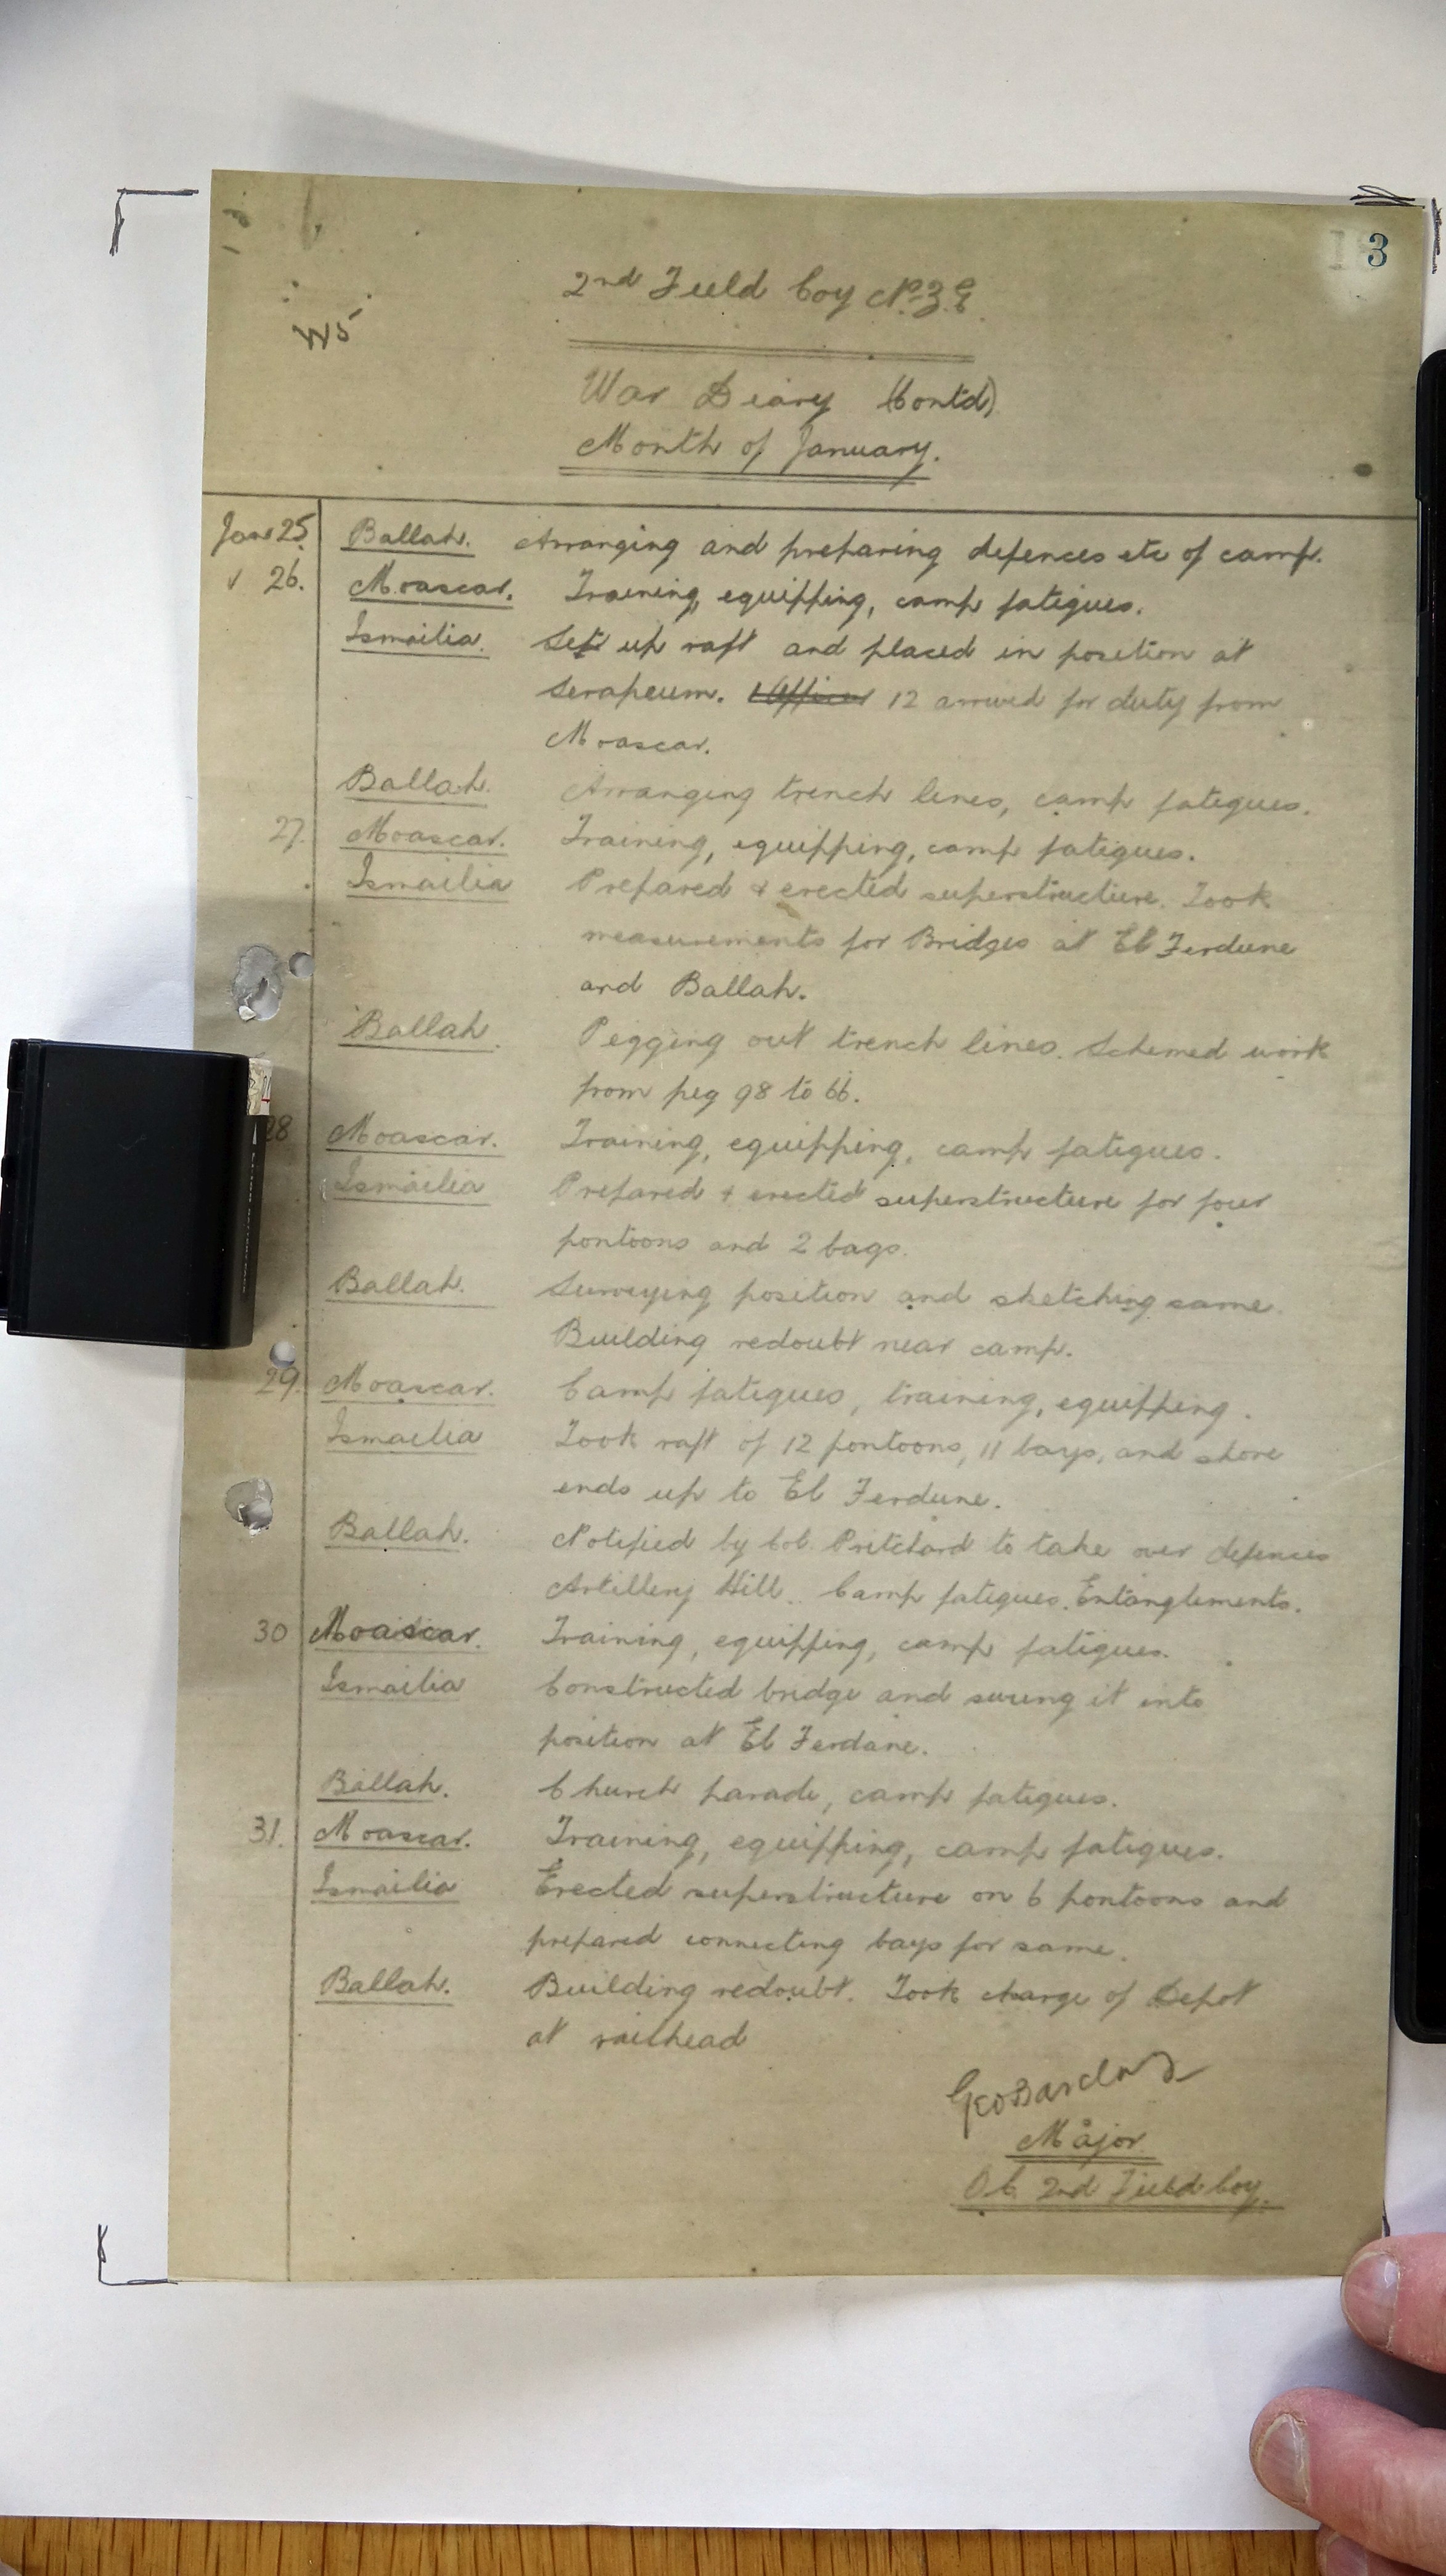 3
2nd Field Coy N.Z.E.
W5
War Diary (Contd)
Month of January.
Jan 25. Ballah. Arranging and preparing defences etc of camp.
" 26. Moascar. Training, equipping, camp fatigues.
Ismailia. Set up raft and placed in position at
Serapeum. 12 arrived for duty from
Moascar.
Ballah. Arranging trench lines, camp fatigues.
27. Moascar. Training, equipping, camp fatigues.
Ismailia Prepared & erected superstructure. Took
measurements for Bridges at El Ferdune
and Ballah.
Ballah. Pegging out trench lines. Schemed work
from peg 98 to 66.
28 Moascar. Training, equipping, camp fatigues.
Ismailia Prepared & erected superstructure for four
pontoons and 2 bays.
Ballah. Surveying position and sketching same.
Building redoubt near camp.
29. Moascar. Camp fatigues, training, equipping.
Ismailia Took raft of 12 pontoons, 11 bays, and shore
ends up to El Ferdune.
Ballah. Notified by Col. Pritchard to take over defences
Artillery Hill. Camp fatigues. Entanglements.
30 Moascar. Training, equipping, camp fatigues.
Ismailia Constructed bridge and swung it into
position at El Ferdane.
Ballah. Church parade, camp fatigues.
31. Moascar. Training, equipping, camp fatigues.
Ismailia Erected superstructure on 6 pontoons and
prepared connecting bays for same.
Ballah. Building redoubt. Took charge of Depot
at railhead
Geo Barclay
Major
O.C. 2nd Field Coy.